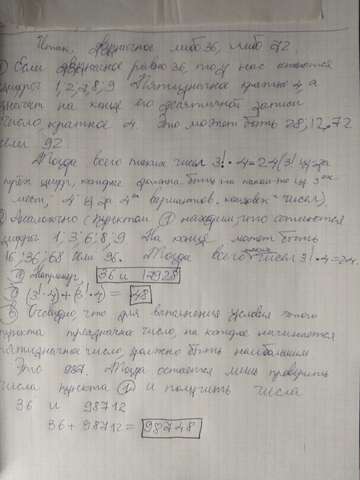 Итак, двузначное либо 36, либо 72.
1) Если двузначное равно 36, тогда у нас остаются
цифры 1, 2, 7, 8, 9 Пятизначное кратно 4, а
значит на конце его десятичной записи
число, кратное 4. Это может быть 28, 12, 72
или 92
Тогда всего таких чисел 3! · 4 = 24 (3! из-за
цифр, каждая должна быть на каком-то из 3ех
мест, 4 из-за 4ех вариантов концовок чисел)
2) Аналогично с пунктом 1 находим, что остаются
цифры 1, 3, 6, 8, 9 На конце может быть
16, 36, 68 или 96. Тогда всего чисел 3! · 4 = 24.
а) Например, 36 и 17928
б) (3! · 4) + (3! · 4) = 48
в) Очевидно, что для выполнения условия этого
пункта число, на которое начинается
пятизначное число, должно быть наибольшим
Это 987. Тогда остается лишь проверить
числа пункта 1 и получить числа
36 и 98712
36 + 98712 = 98748